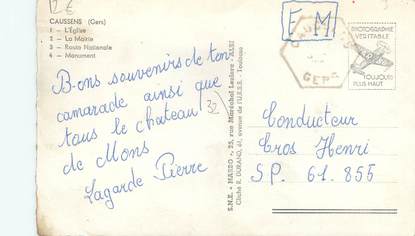 12 €
CAUSSENS (Gers)
1 - L'Église
2 - La Mairie
3 - Route Nationale
4 - Monument
Bons souvenirs de ton
camarade ainsi que
tous le chateau 32
de Mons
Lagarde Pierre
S.N.E. - MARBO - 25, rue Maréchal Leclerc - ALBI
Cliché R. DURAND, 61, avenue de l'U.R.S.S. Toulouse
F M
CAUSSENS
GERS
PHOTOGRAPHIE
VERITABLE
TOUJOURS
PLUS HAUT
Conducteur
Cros Henri
SP. 61.855